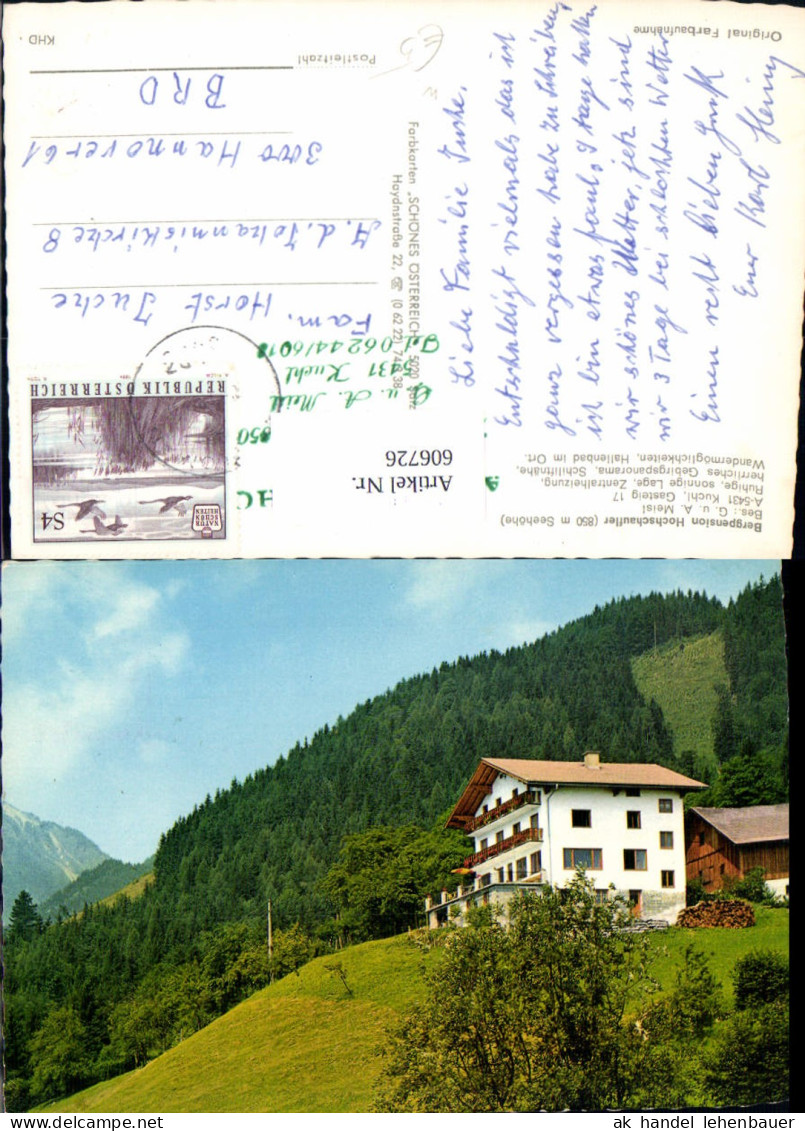 Bergpension Hochschaufler (850 m Seehöhe)
Bes.: G. u. A. Meisl
A-5431 Kuchl, Gasteig 17
Ruhige, sonnige Lage, Zentralheizung,
herrliches Gebirgspanorama, Schiliftnähe,
Wandermöglichkeiten, Hallenbad im Ort.
Liebe Familie Tuche,
Entschuldigt vielmals das ich
ganz vergessen habe zu schreiben,
ich bin etwas faul, 9 Tage hatten
wir schönes Wetter, jetz sind
wir 3 Tage bei schlechten Wetter
Einen recht lieben Gruß
Euer Karl Heinz
Original Farbaufnahme
Farbkarten „SCHÖNES ÖSTERREICH" 5020
Haydnstraße 22, ☎ (0 62 22) 74 38
G. u. A. Meisl
5431 Kuchl
Tel. 06244/6018
Artikel Nr.
606726
REPUBLIK ÖSTERREICH
S4
NATUR
SCHÖN
HEITEN
Fam. Horst Tuche
A. d. Johanniskirche 8
3000 Hannover 61
BRD
Postleitzahl
KHD
€5
ak handel lehenbauer